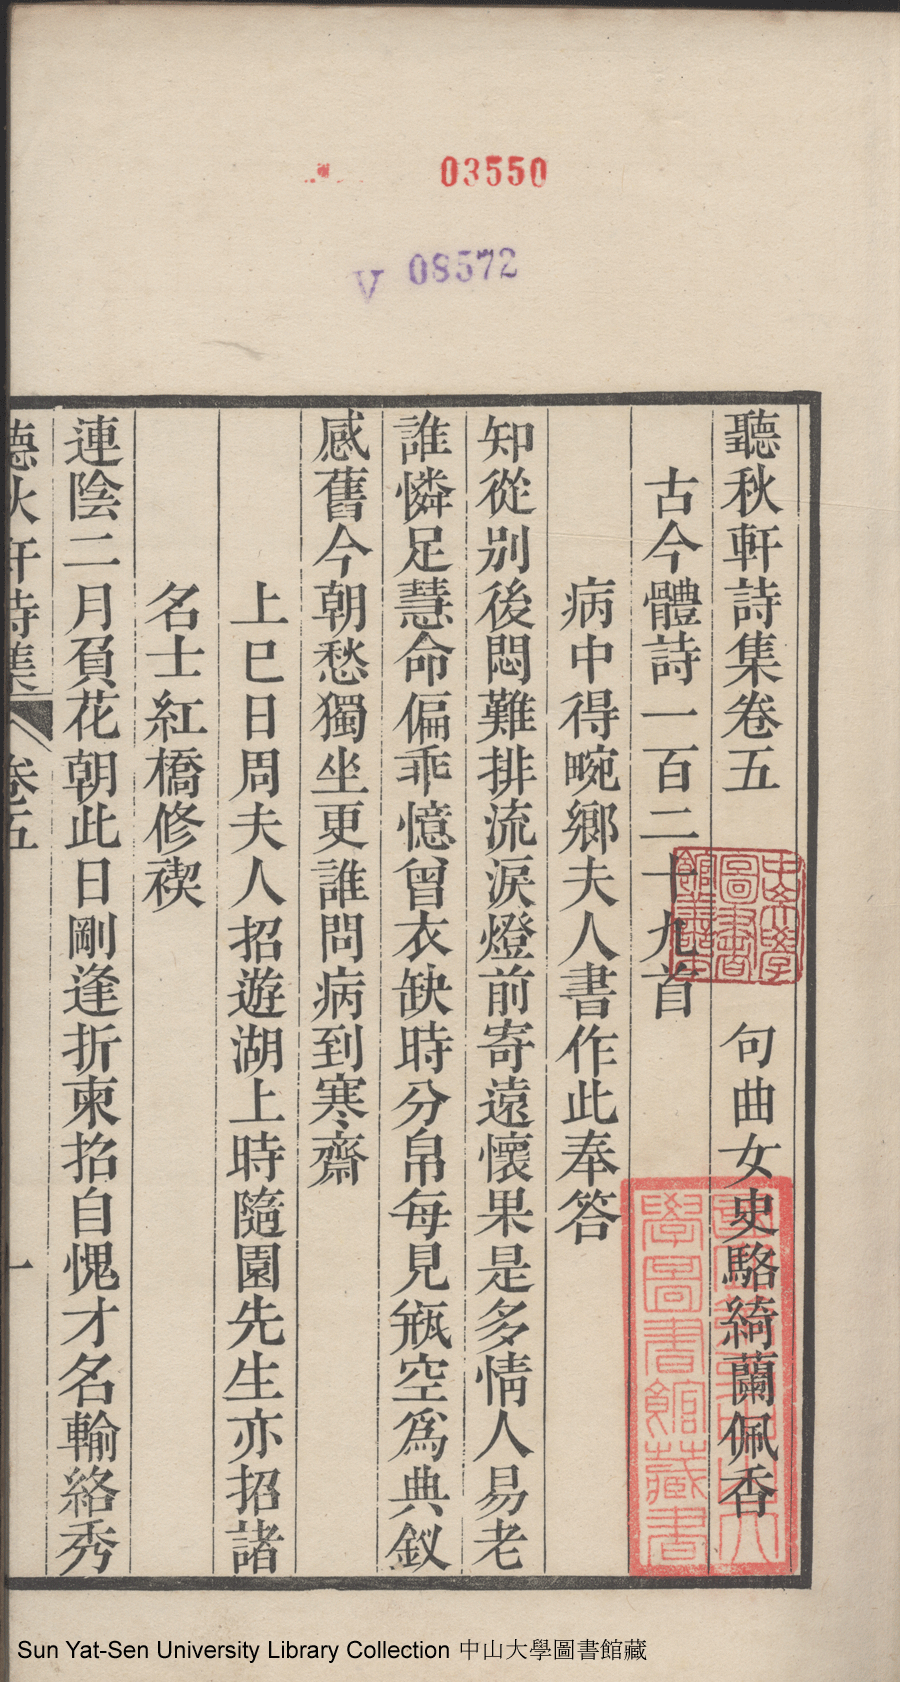 03550
V 08572
聽秋軒詩集卷五 句曲女史駱綺蘭佩香
古今體詩一百二十九首
病中得畹鄉夫人書作此奉答
知從別後悶難排流淚燈前寄遠懷果是多情人易老
誰憐足慧命偏乖憶曾衣缺時分帛每見瓶空爲典釵
感舊今朝愁獨坐更誰問病到寒齋
上巳日周夫人招遊湖上時隨園先生亦招諸
名士紅橋修禊
連陰二月負花朝此日剛逢折柬招自愧才名輸絡秀
聽秋軒詩集 卷五 一
Sun Yat-Sen University Library Collection 中山大學圖書館藏